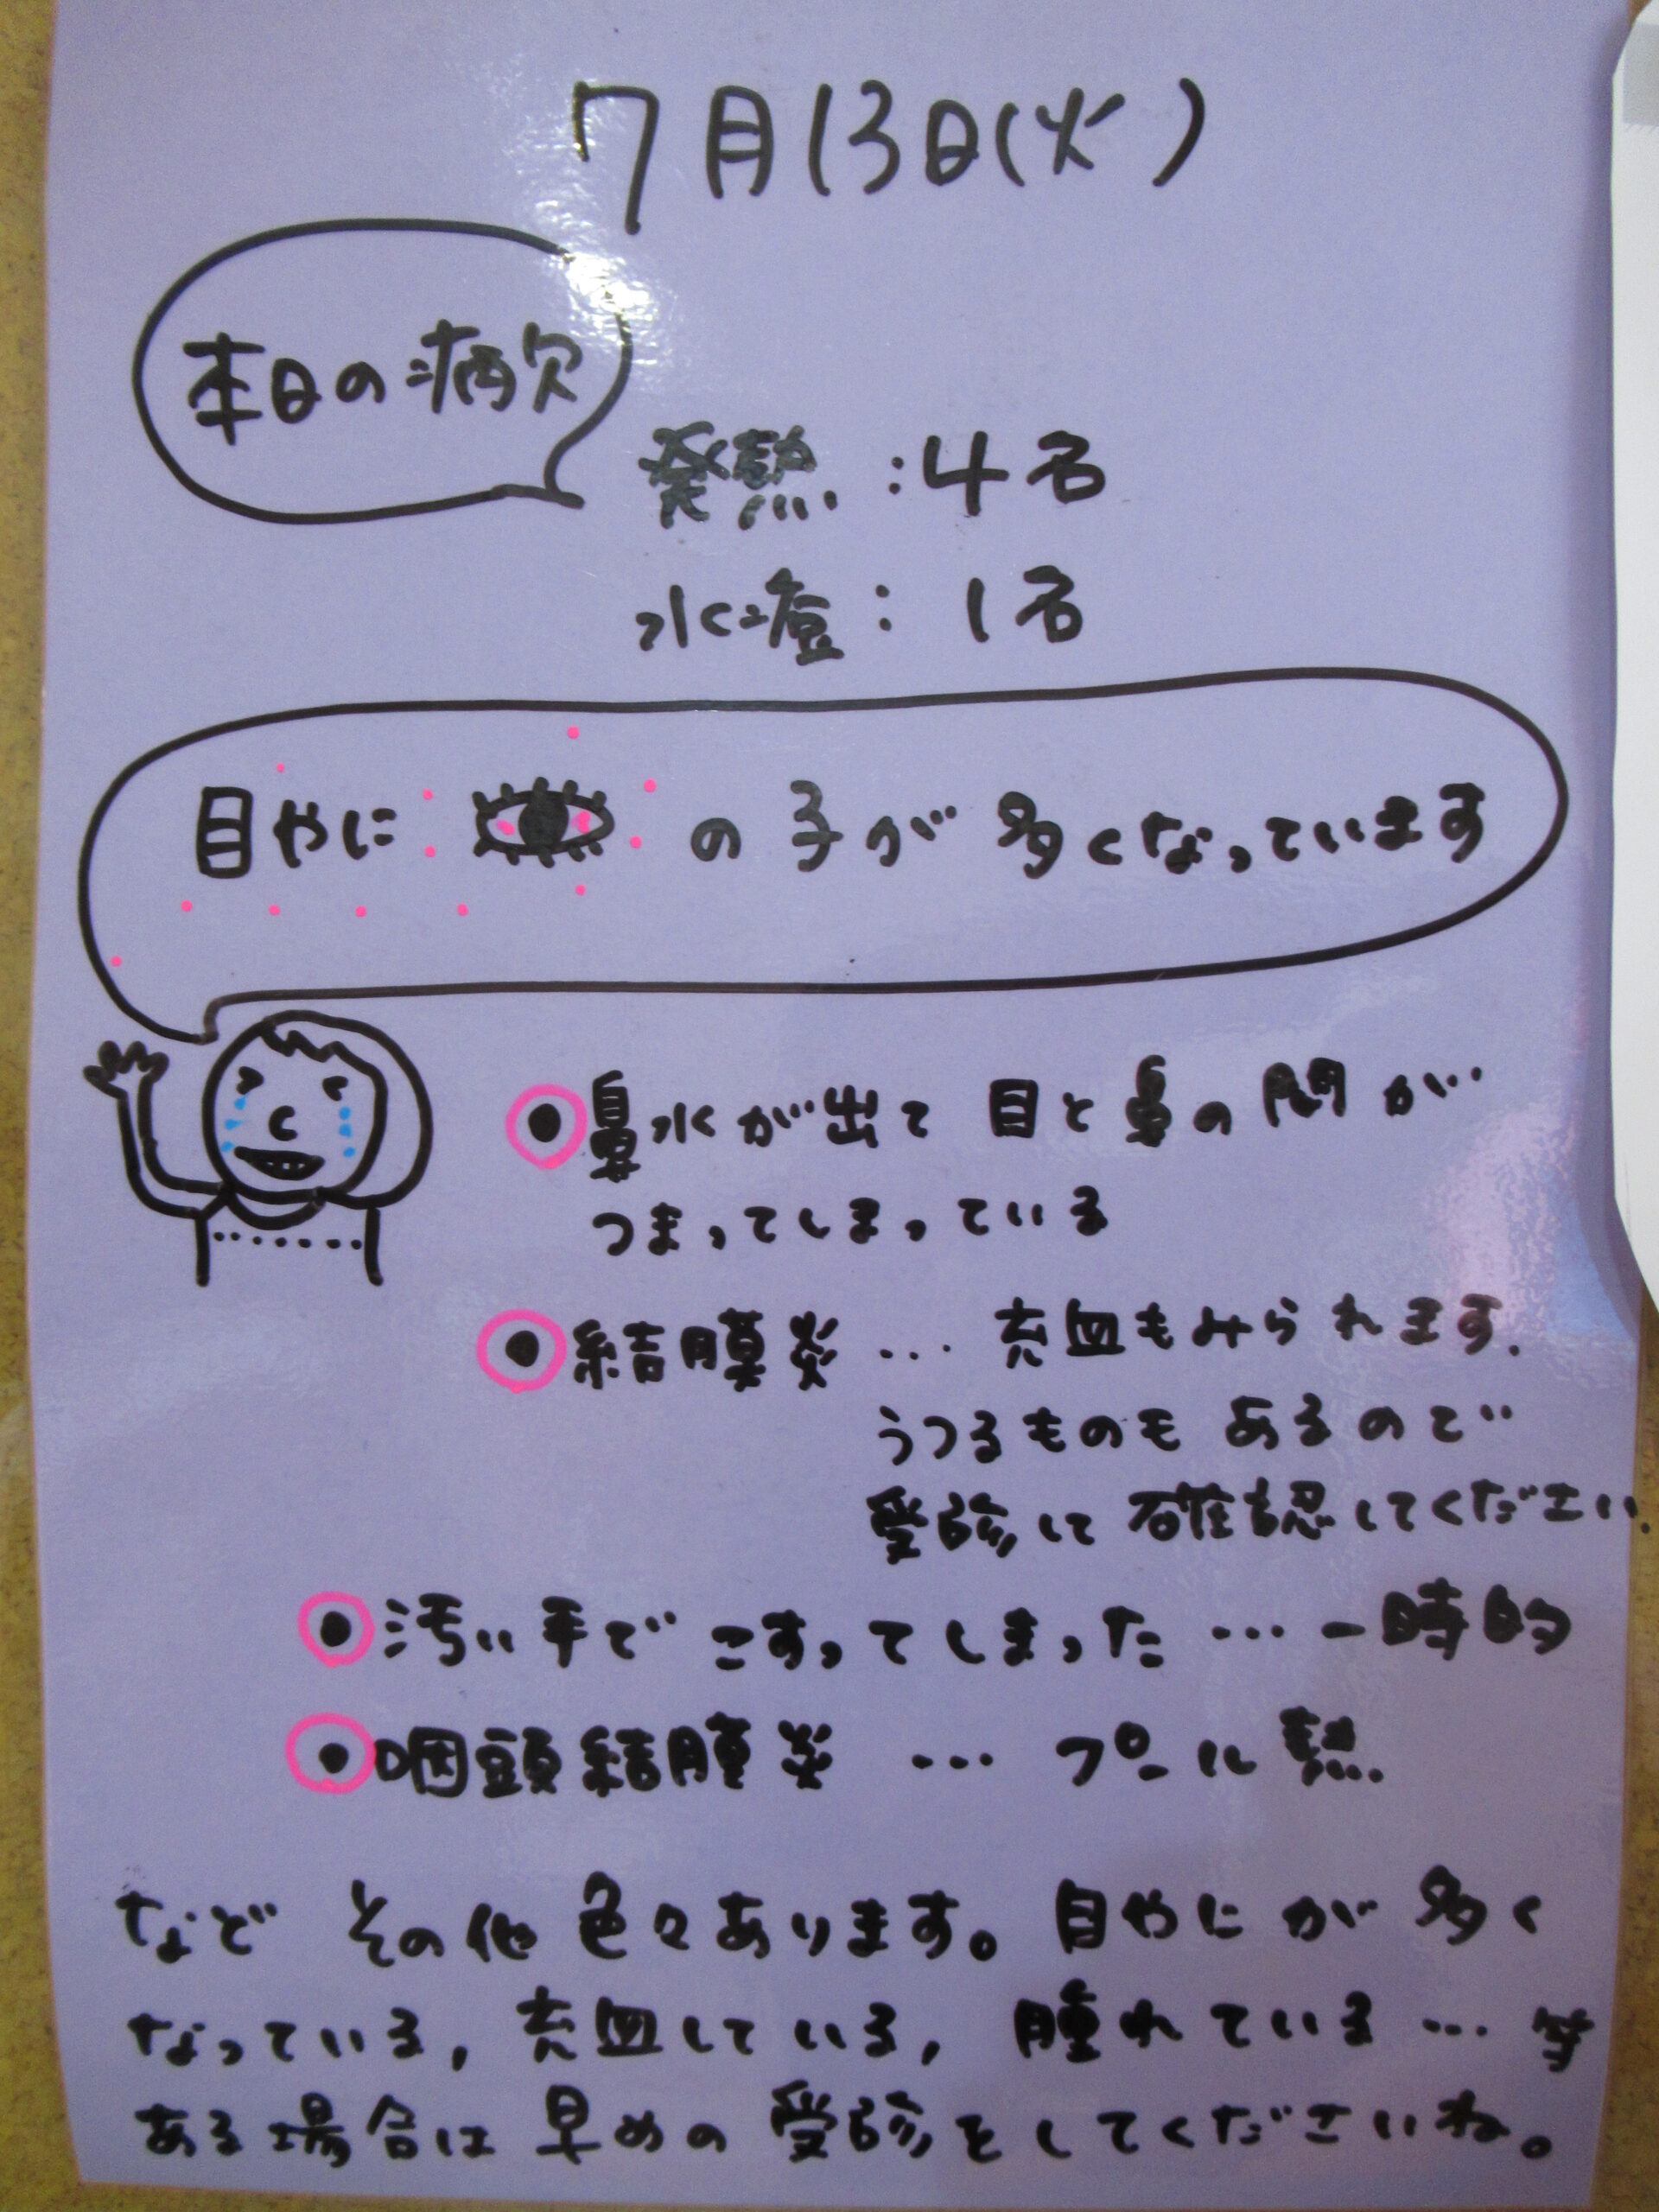 7月13日(火)
本日の病欠
発熱:4名
水痘:1名
目やにの子が多くなっています
鼻水が出て目と鼻の間が
つまってしまっている
結膜炎…充血もみられます.
うつるものもあるので
受診して確認してください.
汚い手でこすってしまった…一時的
咽頭結膜炎…プール熱
などその他色々あります。目やにが多く
なっている,充血している,腫れている…等
ある場合は早めの受診をしてくださいね。